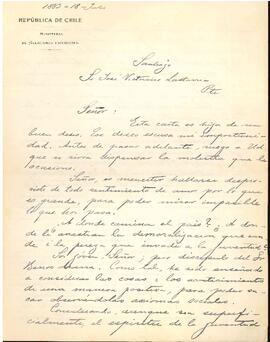 1883-18-Julio
REPÚBLICA DE CHILE
MINISTERIO
DE RELACIONES EXTERIORES
Santiago
S. José Victorino Lastarria
Pte
Señor:
Esta carta es hija de un
buen deseo. Ese deseo escusa mi importuni-
dad. Antes de pasar adelante ruego a Ud
que se sirva dispensar la molestia que le
ocasiono.
Señor, es menester hallarse despro-
visto de todo sentimiento de amor por lo que
es grande, para poder mirar impasible
lo que hoi pasa.
A donde camina el pais? A don-
de la arrastran la desmoralizacion que cun-
de i la pereza que invade a la juventud?
Soi jóven, Señor, soi discípulo del Sr
Barros Arana. Como tal, he sido enseñado
a considerar las cosas i los acontecimientos
de una manera positiva para poder sa-
car
sociales.
Considerando, aunque sea superfi-
cialmente, el espíritu de la juventud